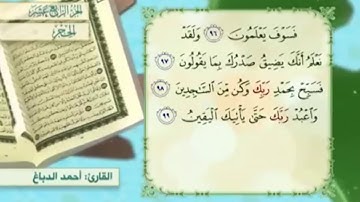 الجزء الرابع عشر
الحجر
فَسَوْفَ يَعْلَمُونَ ٩٦ وَلَقَدْ
نَعْلَمُ أَنَّكَ يَضِيقُ صَدْرُكَ بِمَا يَقُولُونَ ٩٧
فَسَبِّحْ بِحَمْدِ رَبِّكَ وَكُن مِّنَ السَّاجِدِينَ ٩٨
وَاعْبُدْ رَبَّكَ حَتَّىٰ يَأْتِيَكَ الْيَقِينُ ٩٩
القارئ: أحمد الدباغ